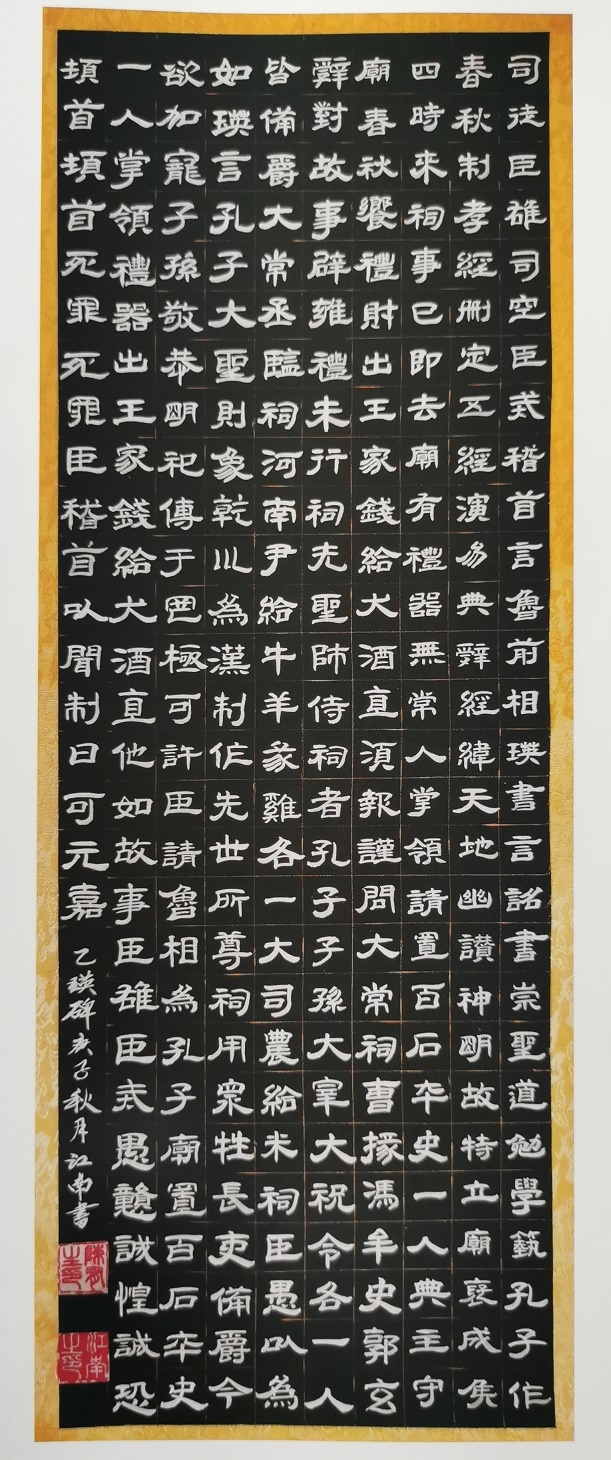 司徒臣雄司空臣戒稽首言魯前相瑛書言詔書崇聖道勉學藝孔子作
春秋制孝經刪定五經演易典辭經緯天地幽讃神眀故特立廟襃成侯
四時來祠事已即去廟有禮器無常人掌領請置百石卒史一人典主守
廟春秋饗禮財出王家錢給犬酒直須報謹問大常祠曹掾馮牟史郭玄
辭對故事辟雍禮未行祠先聖師侍祠者孔子子孫大宰大祝令各一人
皆備爵大常丞監祠河南尹給牛羊豕雞各一大司農給米祠臣愚以為
如瑛言孔子大聖則象乾巛為漢制作先世所尊祠用衆牲長吏備爵今
欲加寵子孫敬恭眀祀傳于罔極可許臣請魯相為孔子廟置百石卒史
一人掌領禮器出王家錢給犬酒直他如故事臣雄臣戒愚戇誠惶誠恐
頓首頓首死罪死罪臣稽首以聞制曰可元嘉
乙瑛碑庚子秋月江南書
江南之印